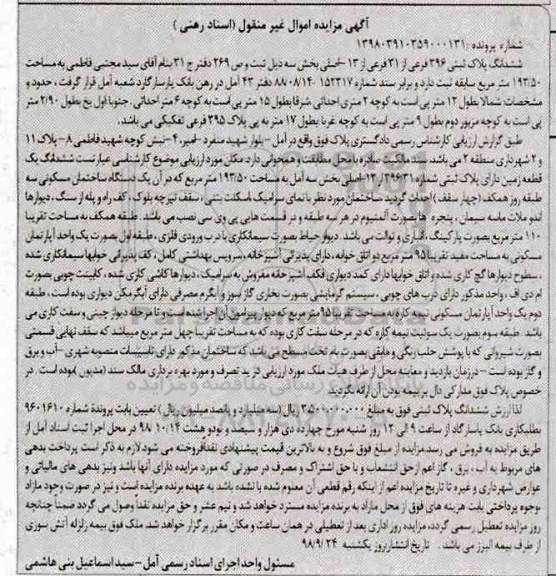 آگهی مزایده اموال غیر منقول (اسناد رهنی)
شماره پرونده : ۱۳۹۸۰۳۹۱۰۳۵۹۰۰۰۱۳۱
ششدانگ پلاک ثبتی ۳۹۶ فرعی از ۳۱ فرعی از ۱۳ -اصلی بخش سه ذیل ثبت و ص ۲۶۹ دفتر ج ۳۱ بنام آقای سید مجتبی فاطمی به مساحت
۱۹۳/۵۰ متر مربع سابقه ثبت دارد و برابر سند شماره ۱۵۲۳۱۷ -۸۸/۰۸/۱۴ دفتر ۴۳ آمل در رهن بانک پاسارگارد شعبه آمل قرار گرفت ، حدود و
مشخصات: شمالا بطول ۱۲ متر پی است به کوچه ۲ متری احداثی شرقا بطول ۱۵ متر پی است به کوچه ۶ متر احداثی . جنوبا اول پخ بطول ۲/۹۰ متر
پی است به کوچه مزبور دوم بطول ۹ متر پی است به کوچه غربا بطول ۱۷ متر به پی پلاک ۳۹۵ فرعی تفکیکی می باشد.
طبق گزارش ارزیابی کارشناس رسمی دادگستری پلاک فوق واقع در آمل -بلوار شهید منفرد -امیر ۴-نبش کوچه شهید فاطمی ۸- پلاک ۱۱
و ۲ شهرداری منطقه ۲ می باشد. سند مالکیت صادره با محل مطابقت و همخوانی دارد. مکان مورد ارزیابی موضوع کارشناسی عبارتست ششدانگ یک
قطعه زمین دارای پلاک ثبتی شماره ۱۳/۳۹۶۳۱-اصلی بخش سه آمل به مساحت ۱۹۳/۵۰ متر مربع که در آن یک دستگاه ساختمان مسکونی سه
طبقه روز همکف (چهار سقف) احداث گردید. ساختمان مورد نظر با نمای سرامیک ،اسکلت بتنی ، سقف تیرچه بلوک ، کف راه و پله از سنگ ، دیوارها
اندو ملات ماسه سیمان ، پنجره ها بصورت آلمنیوم در هر سه طبقه و در قسمت هایی پی وی سی نصب می باشد. طبقه همکف به مساحت تقریبا
۱۱۰ متر مربع بصورت پارکینگ ، انباری و توالت می باشد. دیوار حیاط بصورت سیمانکاری با درب ورودی فلزی، طبقه اول بصورت یک واحد آپارتمان
مسکونی به مساحت مفید تقریبا ۹۵ متر مربع دو اتاق خوابه ، دارای پذیرائی، آشپزخانه ،سرویس بهداشتی کامل ، کف پذیرائی خوابها سرامیک شده
، سطوح دیوارها گچ کاری شده و اتاق خوابها دارای کمد دیواری فکف آشپزخانه مفروش به سرامیک ، دیوارها کاشی کاری شده ، کابینت چوبی بصورت
ام دی اف ، واحد مذکور دارای درب های چوبی ، سیستم گرمایشی بصورت بخاری گاز سوز و آبگرم مصرفی دارای آبگرمکن دیواری بوده است ، طبقه
دوم یک واحد آپارتمان مسکونی نیمه کاره به مساحت تقریبا ۹۵ متر مربع که دیوار پیرامون آن اجرا شده است و تا مرحله دیوار چینی و سفت کاری می
باشد. طبقه سوم بصورت یک سوئیت نیمه کاره که در مرحله سفت کاری بوده که به مساحت تقریبا چهل متر مربع میباشد که سقف نهایی قسمتی
بصورت شیروانی که با پوشش حلب رنگی و مابقی بصورت بام تخت مسطح می باشد که ساختمان مذکور دارای تاسیسات منصوبه شهری -آب و برق
و گاز بوده است -در زمان بازدید و معاینه محل از طرف هیات ملک مورد ارزیابی در ید تصرف و مورد بهره برداری مالک سند (مدیون) بوده است . در
خصوص پلاک فوق مدارکی دال بر بیمه بودن آن ارائه نگردید.
لذا ارزش ششدانگ پلاک ثبتی فوق به مبلغ ۳۵۰۰۰۰۰۰۰۰ ریال (سه میلیارد و پانصد میلیون ریال) تعیین بابت پرونده شماره ۹۶۰۱۶۱۰
بطلبکاری بانک پاسارگاد از ساعت ۹ الی ۱۲ روز شنبه مورخ چهارده دی هزار و سیصد و نود و هشت ۹۸/۱۰/۱۴ در محل اجرا ثبت اسناد آمل از
طریق مزایده به فروش می رسد.مزایده از مبلغ فوق شروع و به بالاترین قیمت پیشنهادی نقدا فروخته می شود. لازم به ذکر است پرداخت بدهی
های مربوط به آب ، برق ، گاز اعم از حق انشعاب و یا حق اشتراک و مصرف در صورتی که مورد مزایده دارای آنها باشد ونیز بدهی های مالیاتی و
عوارض شهرداری و غیره تا تاریخ مزایده اعم از اینکه رقم قطعی آن معلوم شده یا نشده باشد به عهده برنده مزایده است و نیز در صورت وجود مازاد
وجوه پرداختی بابت هزینه های فوق از محل مازاد به برنده مزایده مسترد خواهد شد و نیم عشر و حق مزایده نقدا وصول می گردد ضمنا چنانچه
روز مزایده تعطیل رسمی گردد، مزایده روز اداری بعد از تعطیلی در همان ساعت و مکان مقرر برگزار خواهد شد. ملک فوق بیمه زلزله آتش سوزی
از طرف بیمه البرز می باشد. تاریخ انتشار: روز یکشنبه ۹۸/۹/۲۴
مسئول واحد اجرای اسناد رسمی آمل -سید اسماعیل بنی هاشمی